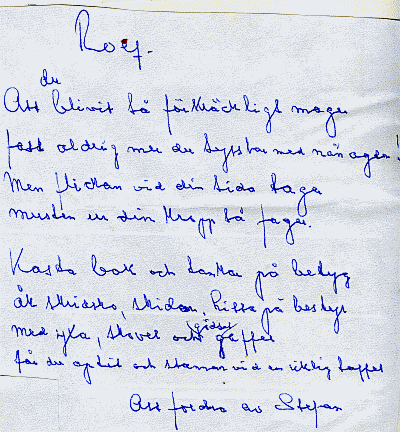 Rolf.
du
Att blivit så förskräckligt mager
fast aldrig mer du sysslar med någon agen!
Men flickan vid din sida tager
musten ur din kropp så fager.
Kasta bok och tankar på betyg
åk skridsko, skidor, hissa på bestyr
med yxa, skovel och gödselgaffel
får du aptit och stannar vid en riktig taffel
Att fordra av Stefan